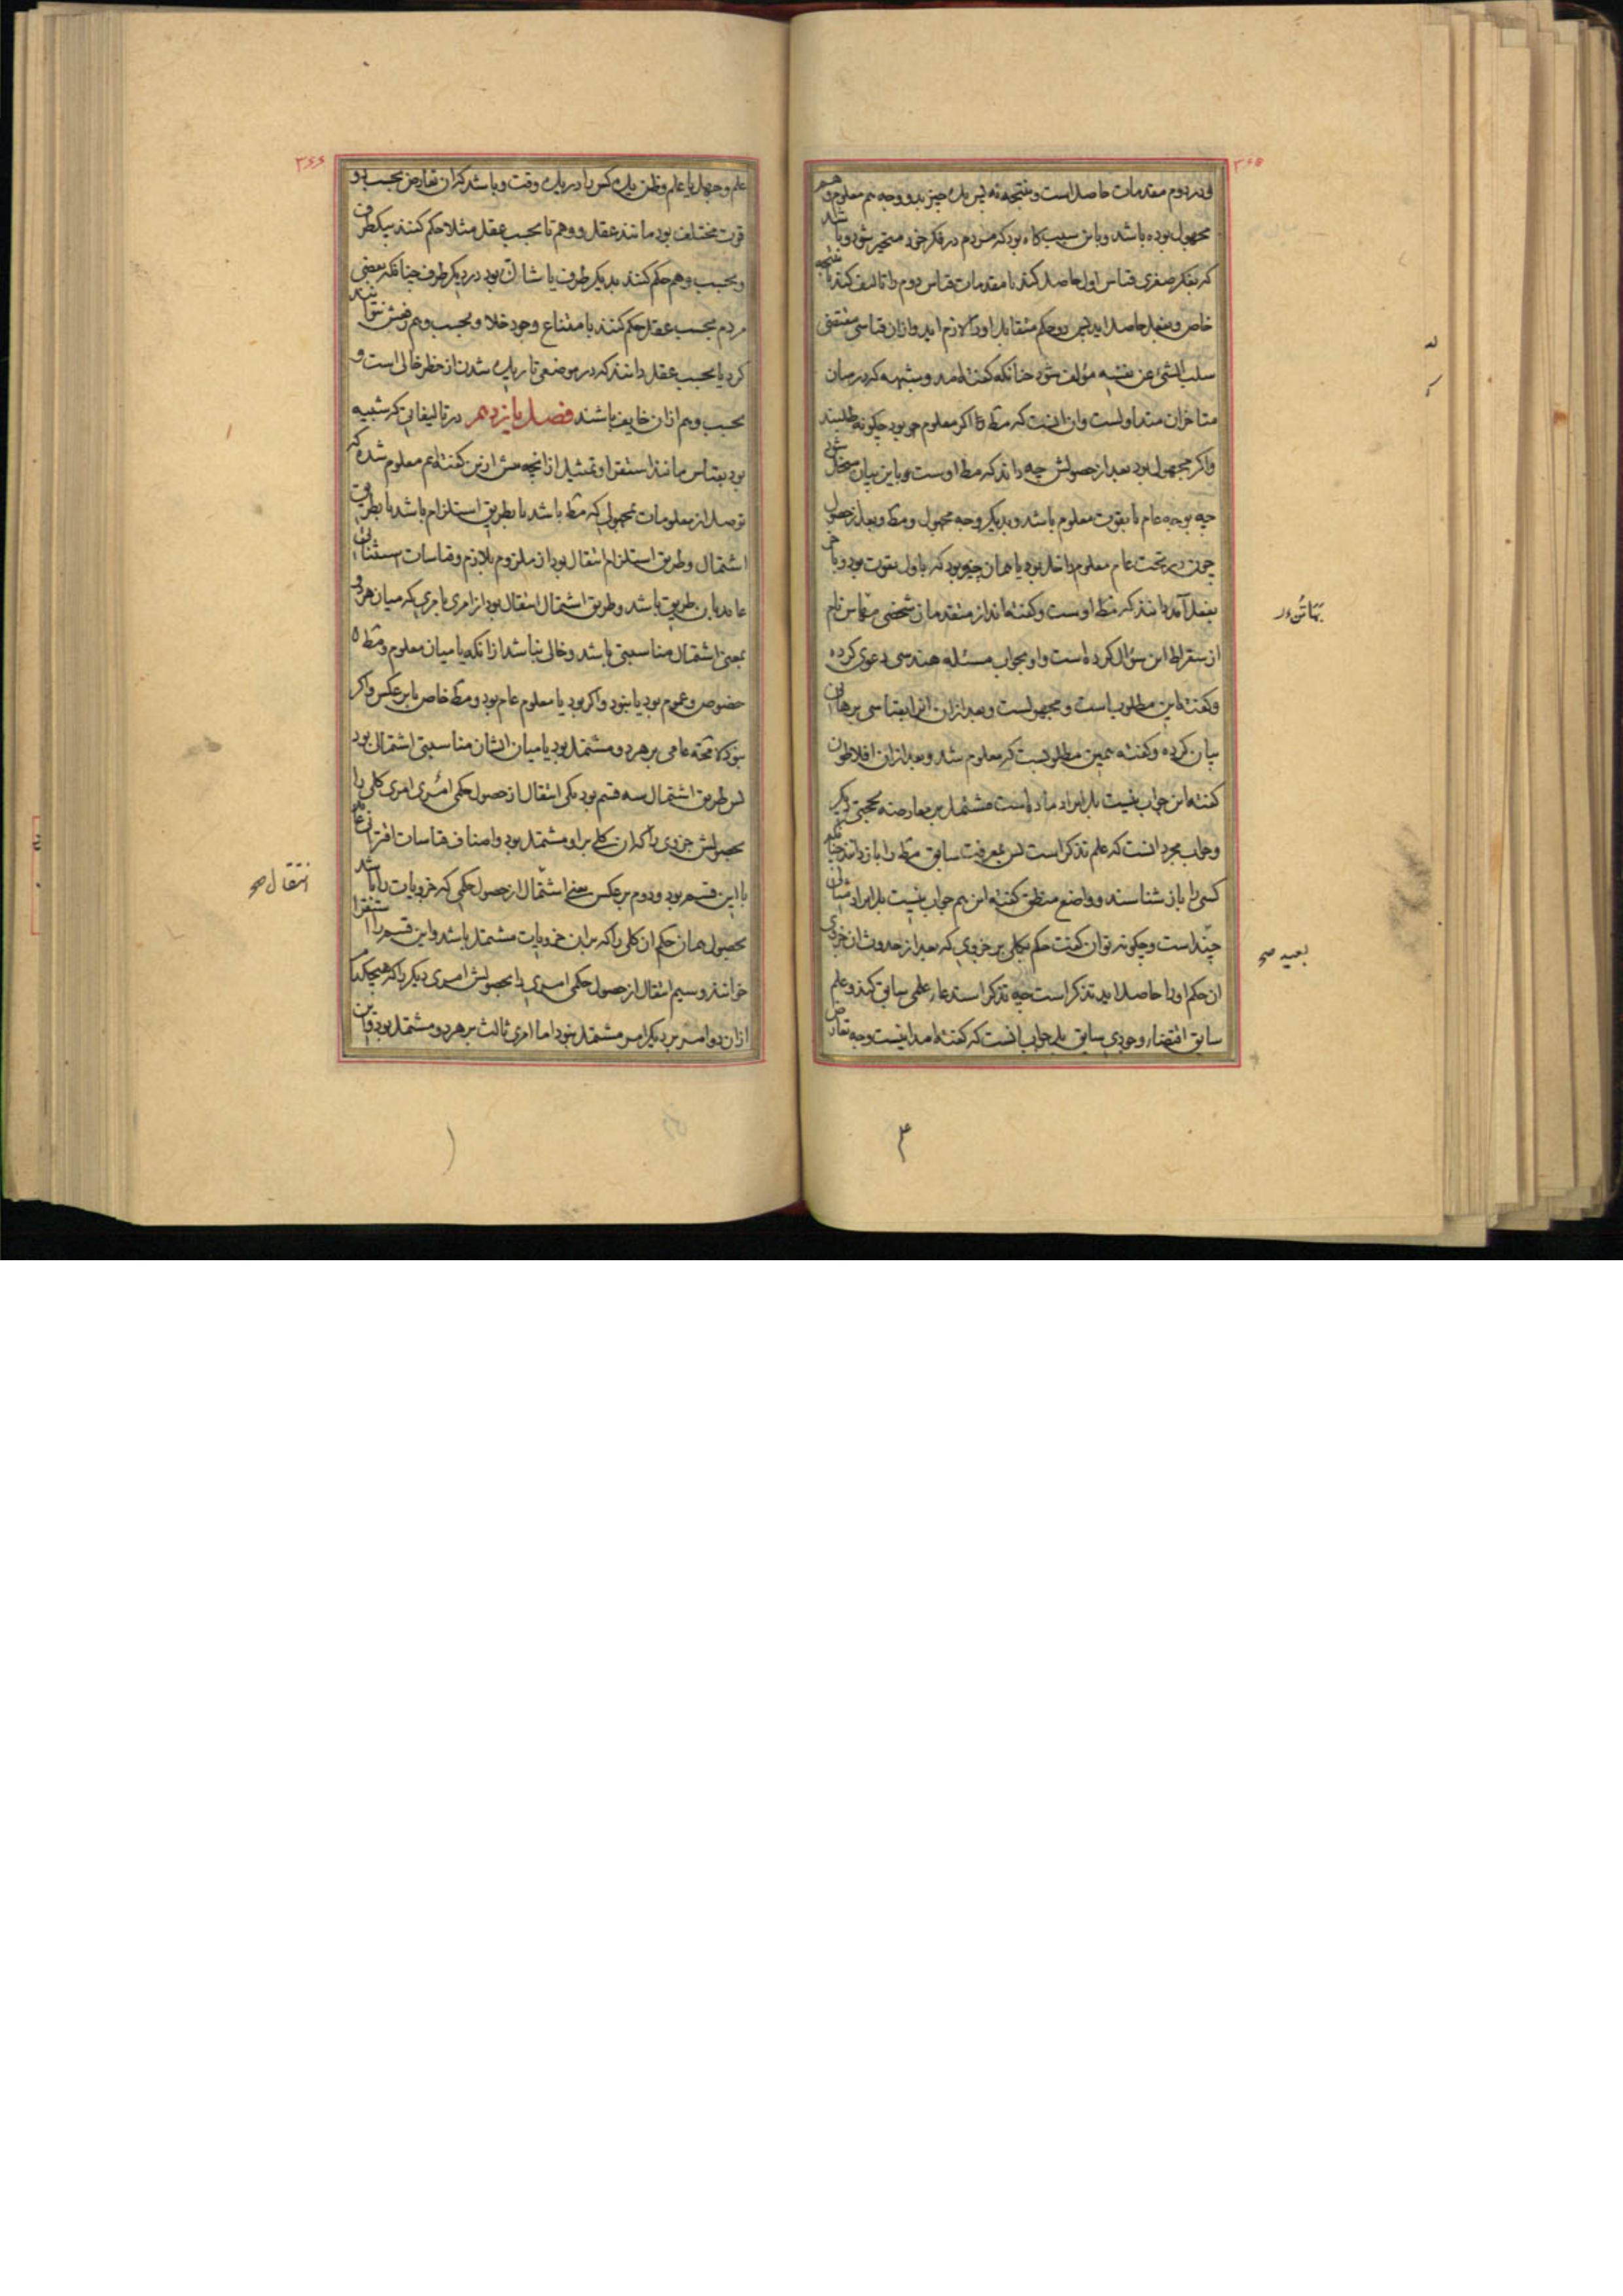 ۳۶۵
و در دوم مقدمات حاصل است و نتیجه نه پس یک چیز بدو وجه هم معلوم و هم
مجهول بوده باشد و باین سبب گاه بود که مردم در فکر خود متحیر شود و باشد
که بفکر صغری قیاس اول حاصل کند با مقدمات قیاس دوم را تالیف کند تا نتیجه
خاص و بفعل حاصل اید پس دو حکم متقابل اورا لازم اید و ازان قیاسی مقتضی
سلب الشی عن نفسه مؤلف شود چنانکه گفته امد و شبهه که در میان
متاخران متداولست وان انست که مط را اگر معلوم بود چگونه طلبند
واگر مجهول بود بعد از حصولش چه داند که مط اوست و باین بیان منحل شود
چه بوجه عام یا بقوت معلوم باشد و بدیگر وجه مجهول و مط و بعد از حصول
چون در تحت عام معلوم داخل بود یا همان چیز بود که باول بقوت بود و باخر
بفعل آمد دانند که مط اوست و گفته اند از متقدمان شخصی مانن نام
بهاتُوءر
از سقراط این سؤال کرده است و او بجواب مسئله هندسی دعوی کرده
و گفته این مطلوب است و مجهولست و بعد ازان انرا بقیاسی برهانی
بیان کرده و گفته همین مطلوبست که معلوم شد و بعد ازان افلاطون
گفته این جواب نیست بل ایراد ماده است مشتمل بر معارضه بحجتی دیگر
و جواب مجرد انست که علم تذکر است پس بمعرفت سابق مط را باز دانند چنانکه
کسی را باز شناسند و واضع منطق گفته این هم جواب نیست بل ایراد مثالی
چنداست و چگونه توان گفت حکم بکلی بر جزوی که بعد از حدوث ان جزوی
بعید صح
ان حکم اورا حاصل اید تذکر است چه تذکر استدعاء علمی سابق کند و علم
سابق اقتضاء وجودی سابق بلی جواب انست که گفته امد اینست وجه تعارض
۳۶۶
علم و جهل یا علم و ظن یک کس را در یک وقت و باشد که ان تعارض بحسب دو
قوت مختلف بود مانند عقل و وهم تا بحسب عقل مثلا حکم کنند بیکطرف
و بحسب وهم حکم کنند بدیگر طرف یا شاک بود در دیگر طرف چنانکه بعضی
مردم بحسب عقل حکم کنند بامتناع وجود خلا و بحسب وهم رفعش نتوانند
کرد یا بحسب عقل دانند که در موضعی تاریک شدن از خطر خالی است و
بحسب وهم ازان خایف باشند فصل یازدهم در تالیفاتی که شبیه
بود بقیاس مانند استقرا و تمثیل ازانچه پیش ازین گفته ایم معلوم شده که
توصل از معلومات بمجهولی که مط باشد یا بطریق استلزام باشد یا بطریق
اشتمال و طریق استلزام انتقال بود از ملزوم بلازم و قیاسات استثنائی
عاید باین طریق باشد و طریق اشتمال انتقال بود از امری بامری که میان هر دو
بمعنی اشتمال مناسبتی باشد و خالی نباشد ازانکه یا میان معلوم و مط
خصوص و عموم بود یا نبود واگر بود یا معلوم عام بود و مط خاص یا بر عکس واگر
نبود لا محة عامی بر هر دو مشتمل بود یا میان ایشان مناسبتی اشتمال بود
پس طریق اشتمال سه قسم بود یکی انتقال از حصول حکمی امری امری کلی را
بحصولش جزوی را که ان کلی بر او مشتمل بود و اصناف قیاسات اقترانی عاید
با این قسم بود و دوم بر عکس یعنی اشتمال از حصول حکمی که جزویات را باشد
انتقال صح
بحصول همان حکم ان کلی را که بران جزویات مشتمل باشد و این قسم را استقرا
خوانند و سیم انتقال از حصول حکمی امری را بحصولش امری دیگر را که هیچکدام
ازان دو امر بر دیگر امر مشتمل نبود اما امری ثالث بر هر دو مشتمل بود و این